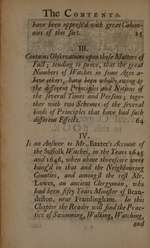 The CONTENTS.
have been oppress'd with great Calum-
nies of this sort. 25
III.
Contains Observations upon those Matters of
Fact; tending to prove, that the great
Numbers of Witches in some Ages
have been wholly owing to
the different Principles and Notions of
the several Times and Persons; toge-
ther with two Schemes of the several
kinds of Principles that have had such
different Effects. 64
IV.
Is an Answer to Mr. Baxter's Account of
the Suffolk Witches, in the Years 1645
and 1646, when above threescore were
hang'd in that and the Neighbouring
Counties, and among the rest Mr.
Lowes, an ancient Clergyman, who
had been fifty Years Minister of Bran-
deston, near Framlingham. In this
Chapter the Reader will find the Prac-
tice of Swimming, Walking, Watching,
and